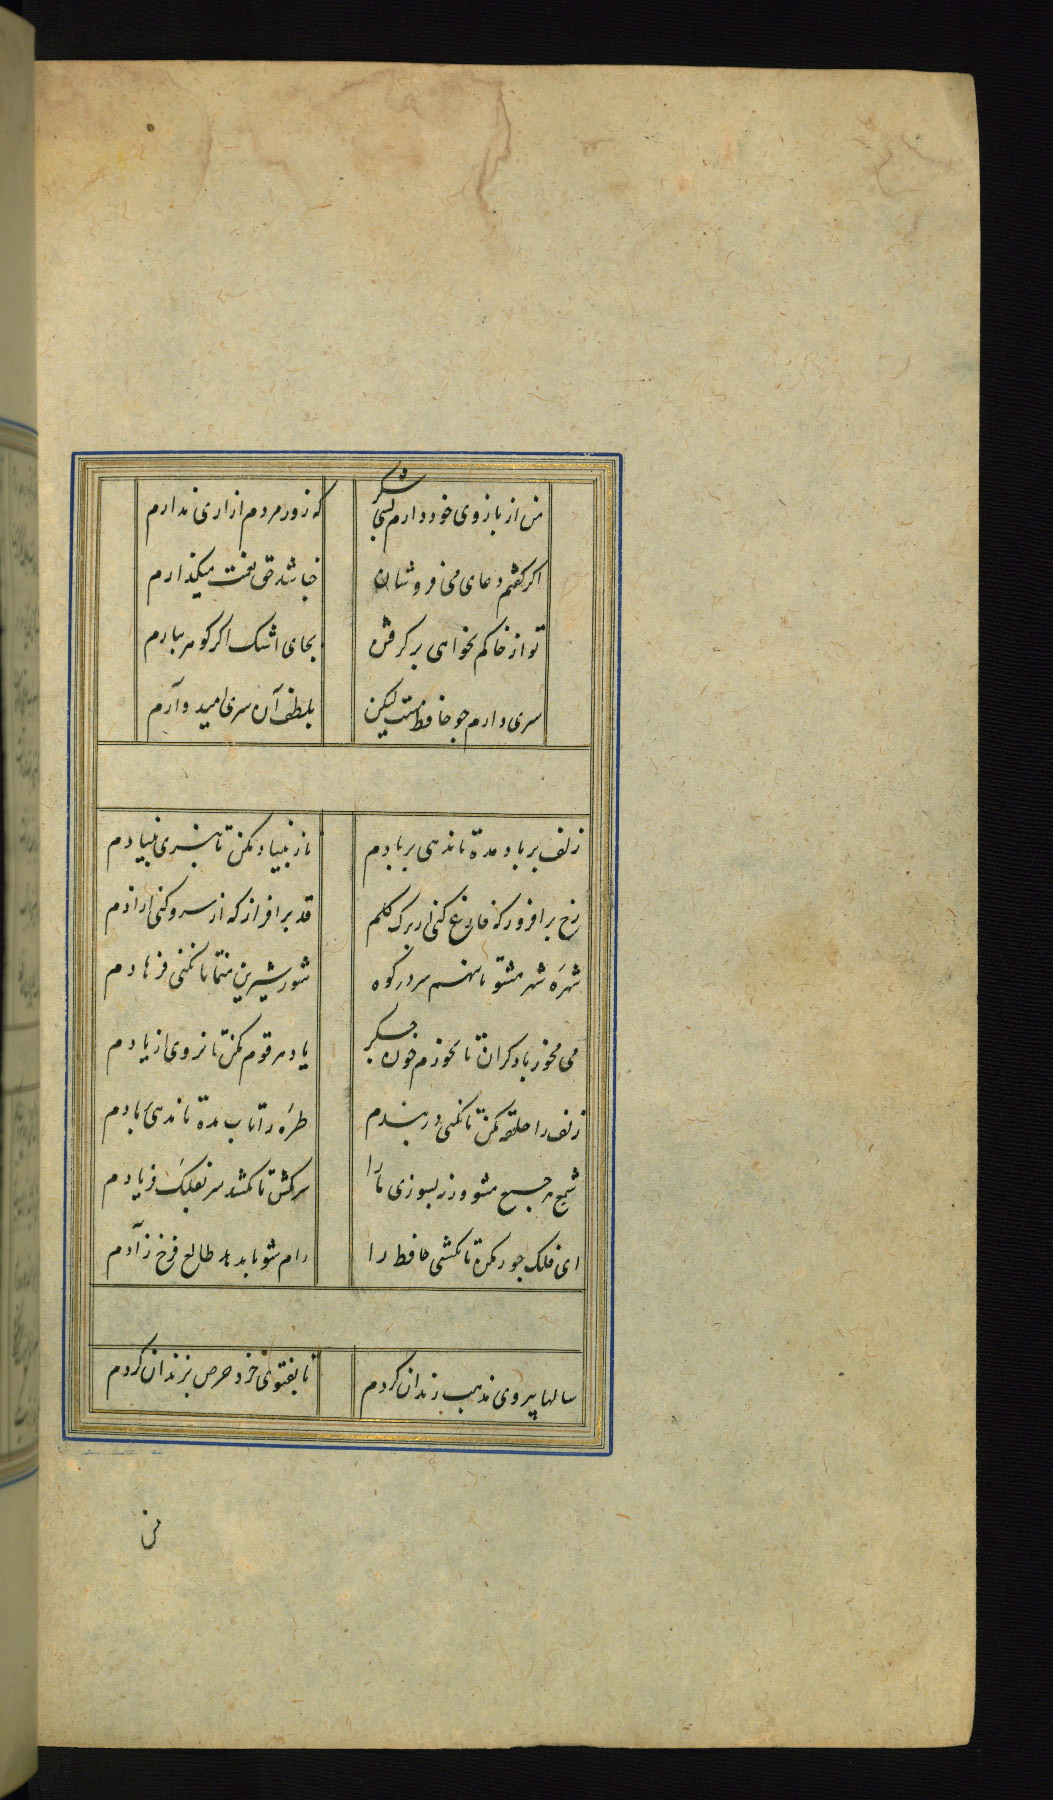 من از بازوی خود دارم بسی شکر که زور مردم ازاری ندارم
اکر کفتم دعای می فروشان جباشد حق نعمت میکذارم
تو از خاکم نخواهی بر کرفتن بجای اشک اکر کوهر ببارم
سری دارم جو حافظ مست لیکن بلطف آن سری امید وآرم
زلف بر باد مده تا ندهی بر بادم ناز بنیاد مکن تا نبری بنیادم
رخ بر افروز که فارغ کنی از برک کلم قد بر افراز که از سرو کنی ازادم
شهره شهر مشو تا ننهم سر در کوه شور شیرین منما تا نکنی فرهادم
می مخور با دکران تا نخورم خون جکر یاد هر قوم مکن تا نروی از یادم
زلف را حلقه مکن تا نکنی در بندم طره را تاب مده تا ندهی بر بادم
شمع هر جمع مشو ورنه بسوزی ما را سر مکش تا نکشد سر بفلک فریادم
ای فلک جور مکن تا نکشی حافظ را رام شو تا بدهد طالع فرخ زادم
سالها پیروی مذهب رندان کردم تا بفتوی خرد حرص بزندان کردم
من